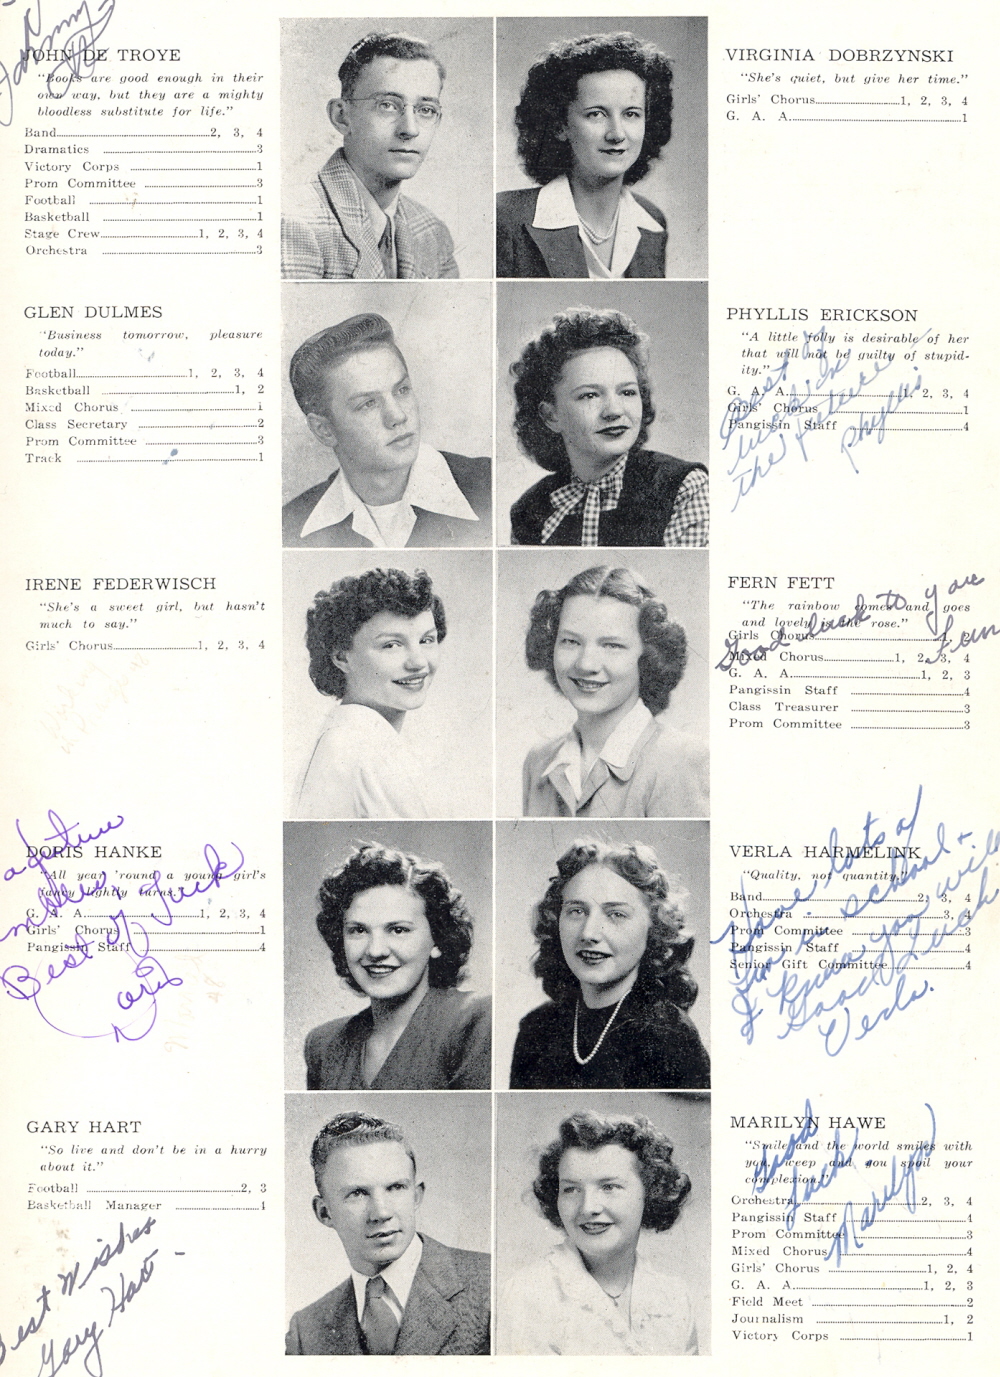 Johnny
JOHN DE TROYE
"Books are good enough in their
own way, but they are a mighty
bloodless substitute for life."
Band 2, 3, 4
Dramatics 3
Victory Corps 1
Prom Committee 3
Football 1
Basketball 1
Stage Crew 1, 2, 3, 4
Orchestra 3
GLEN DULMES
"Business tomorrow, pleasure
today."
Football 1, 2, 3, 4
Basketball 1, 2
Mixed Chorus 1
Class Secretary 2
Prom Committee 3
Track 1
IRENE FEDERWISCH
"She's a sweet girl, but hasn't
much to say."
Girls' Chorus 1, 2, 3, 4
DORIS HANKE
"All year 'round a young girl's
fancy lightly turns."
G. A. A. 1, 2, 3, 4
Girls' Chorus 1
Pangissin Staff 4
Best of Luck
Doris
GARY HART
"So live and don't be in a hurry
about it."
Football 2, 3
Basketball Manager 4
Best Wishes
Gary Hart
VIRGINIA DOBRZYNSKI
"She's quiet, but give her time."
Girls' Chorus 1, 2, 3, 4
G. A. A. 1
PHYLLIS ERICKSON
"A little folly is desirable of her
that will not be guilty of stupid-
ity."
G. A. A. 1, 2, 3, 4
Girls' Chorus 1
Pangissin Staff 4
Best of
luck in
the future
Phyllis
FERN FETT
"The rainbow comes and goes
and lovely is the rose."
Girls Chorus
Mixed Chorus 1, 2, 3, 4
G. A. A. 1, 2, 3
Pangissin Staff 4
Class Treasurer 3
Prom Committee 3
Good luck to you
Fern
VERLA HARMELINK
"Quality, not quantity."
Band 2, 3, 4
Orchestra 3, 4
Prom Committee 3
Pangissin Staff 4
Senior Gift Committee 4
Have lots of
fun in school +
I know you will
Good Luck
Verla.
MARILYN HAWE
"Smile and the world smiles with
you, weep and you spoil your
complexion."
Orchestra 2, 3, 4
Pangissin Staff 4
Prom Committee 3
Mixed Chorus 4
Girls' Chorus 1, 2, 4
G. A. A. 1, 2, 3
Field Meet 2
Journalism 1, 2
Victory Corps 1
Good
Luck
Marilyn